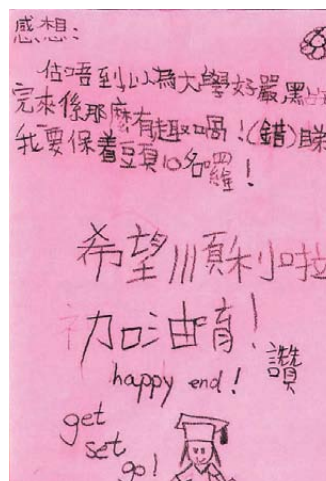 感想：
估唔到以為大學好嚴黑
完來係那麼有趣喎！(錯)睇
我要保着頭10名囉！
希望順利啦
加油唷！
讚
happy end!
get
set
go!